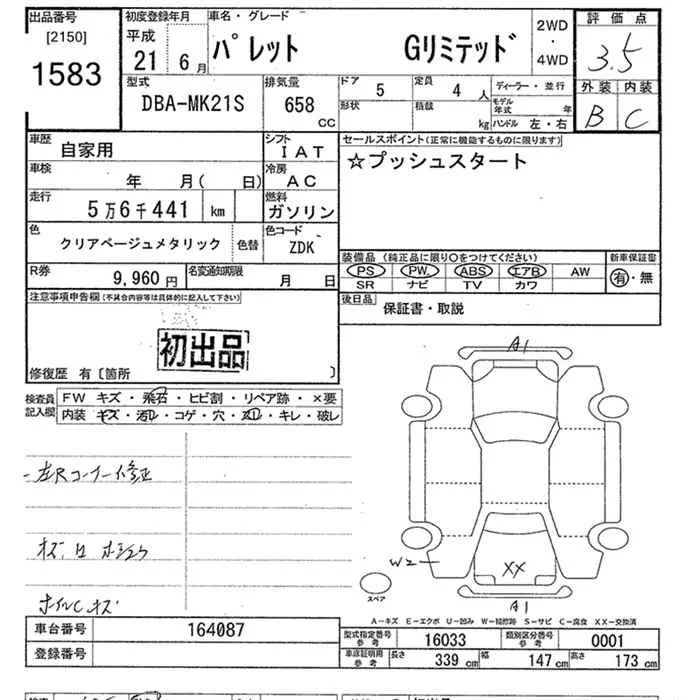 出品番号 初度登録年月 車名・グレード 2WD 評価点
[2150] 平成 ・ 3.5
1583 21 6月 パレット Gリミテッド 4WD
型式 排気量 ドア 5 定員 4人 ディーラー・並行 外装 内装
DBA-MK21S 658 CC 形状 積載 kg モデル年式 年 B C
ハンドル 左・右
車歴 自家用 シフト IAT セールスポイント(正常に機能するものに限ります)
車検 年 月( 日) 冷房 AC ☆プッシュスタート
走行 5万6千441 km 燃料 ガソリン
色 クリアベージュメタリック 色替 色コード ZDK
装備品(純正品に限り○をつけてください) 新車保証書
R券 9,960円 名変通知期限 月 日 PS PW ABS エアB AW 有・無
SR ナビ TV カワ
注意事項申告欄(不具合内容等は具体的に記入して下さい) 後日品 保証書・取説
初出品
修復歴 有〔箇所 〕
A1
検査員記入欄 FW キズ・飛石・ヒビ割・リペア跡・×要
内装・キズ・汚レ・コゲ・穴・スレ・キレ・破レ
左Rコーナー修正
W2
XX
ホイルCキズ
スペア
A1
A-キズ E-エクボ U-凹み W-補修跡 S-サビ C-腐食 XX-交換済
車台番号 164087 型式指定番号 参考 16033 類別区分番号 参考 0001
登録番号 車庫証明用 参考 長さ 339cm 幅 147cm 高さ 173cm